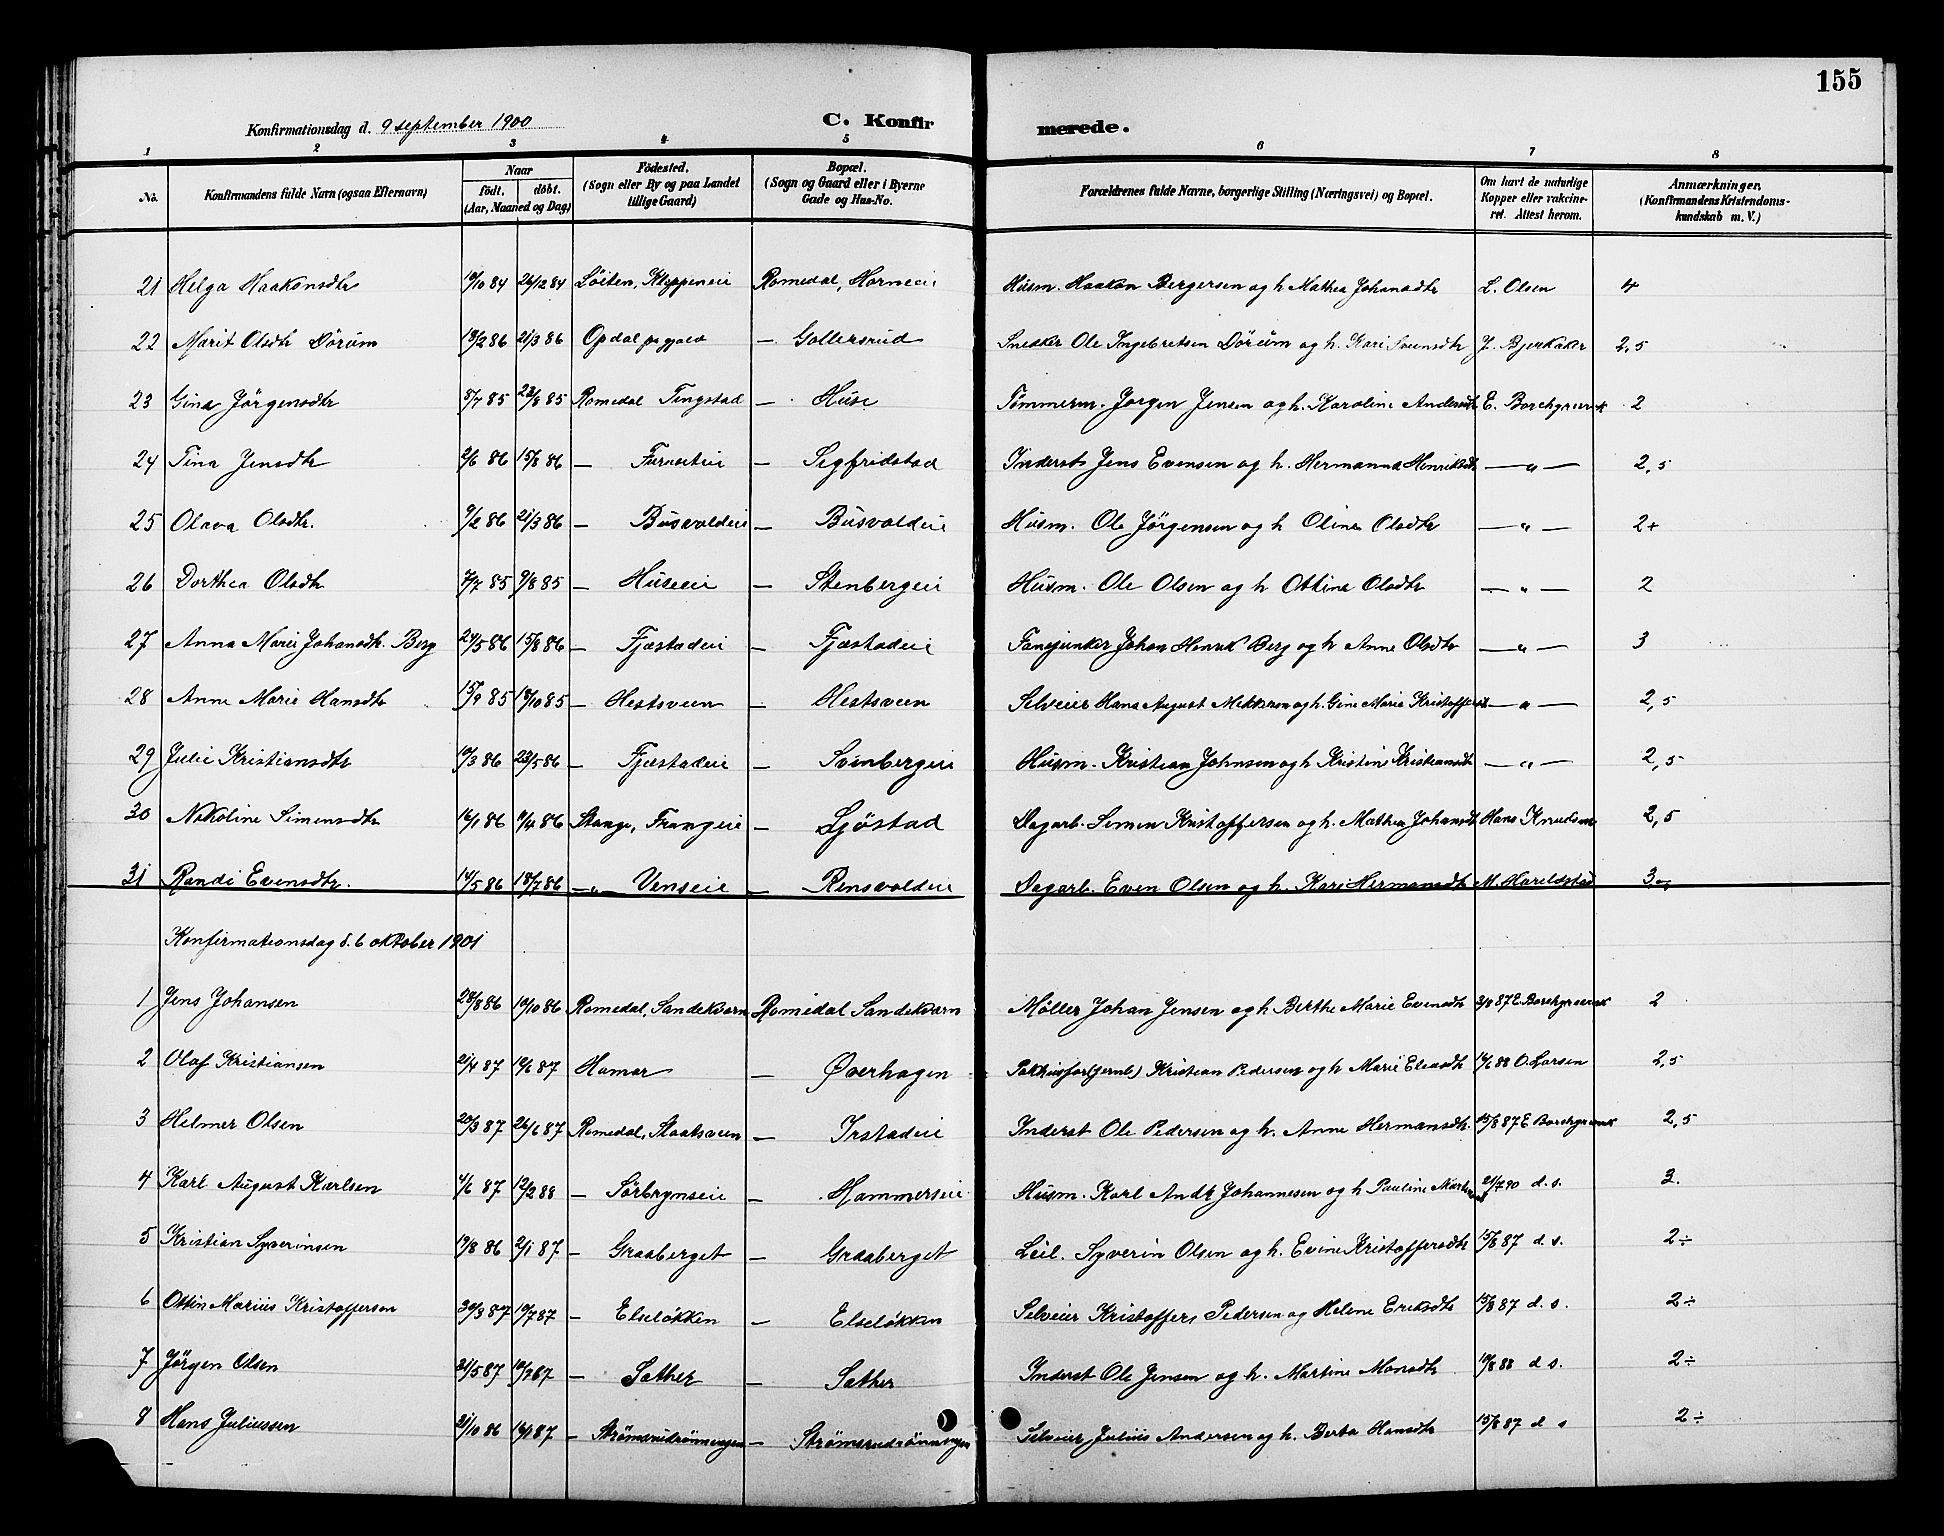 155
Konfirmationsdag d. 9 september 1900 C. Konfirmerede.
1 2 3 4 5 6 7 8
No. Konfirmandens fulde Navn (ogsaa Efternavn) Naar födt. döbt. (Aar, Maaned og Dag) Födested. (Sogn eller By og paa Landet tillige Gaard) Bopæl. (Sogn og Gaard eller i Byerne Gade og Hus-No. Forældrenes fulde Navne, borgerlige Stilling (Næringsvei) og Bopæl. Om havt de naturlige Kopper eller vakcineret. Attest herom. Anmærkninger. (Konfirmandens Kristendomskundskab m. V.)
21 Helga Haakonsdtr 19/10 84 26/12 84 Löiten, Kleppeneie Romedal, Horneeie Husm. Haakon Bergersen og h. Mathea Johansdtr L. Olsen 4
22 Marit Olsdtr Dörum 19/2 86 21/3 86 Opdal prgjæld — Gollersrud Snedker Ole Ingebretsen Dörum og h. Kari Svensdtr J. Bjerkaker 2,5
23 Gina Jörgensdtr 8/7 85 23/8 85 Romedal Tingstad — Huse Tömmerm. Jorgen Jensen og h. Karoline Andersdtr E. Borchgrevink 2
24 Tina Jensdtr 2/6 86 15/8 86 — — Sigfridstad Inderst Jens Evensen og h. Hermanna Henriksdtr — „ — 2,5
25 Olava Olsdtr. 9/2 86 21/3 86 — Busvoldeie — Busvoldeie Husm. Ole Jörgensen og h Oline Olsdtr — „ — 2+
26 Dorthea Olsdtr 7/7 85 9/8 85 — Huseeie — Stenbergeie Husm. Ole Olsen og h Ottine Olsdtr — „ — 2
27 Anna Marie Johansdtr. Berg 24/5 86 15/8 86 — Fjæstadeie — Fjæstadeie Fanejunker Johan Henrik Berg og h Anne Olsdtr — „ — 3
28 Anne Marie Hansdtr 15/9 85 18/10 85 — Hestsveen — Hestsveen Selveier Hans August Mikkelsen og h. Gine Marie Kristoffersdtr — „ — 2,5
29 Julie Kristiansdtr 10/3 86 23/5 86 — Fjæstadeie — Svenbergeie Husm. Kristian Johnsen og h Kristine Kristiansdtr — „ — 2,5
30 Nikoline Simensdtr 16/1 86 9/4 86 Stange, Frangeie — Ljöstad Dagarb. Simen Kristoffersen og h. Mathea Johansdtr Hans Knudsen 2,5
31 Randi Evensdtr. 14/5 86 18/7 86 — „ — Venseie — Rensvoldeie Dagarb. Even Olsen og h. Kari Hermansdtr M. Horeldstad
Konfirmationsdag d. 6 oktober 1901
1 Jens Johansen 28/8 86 10/10 86 Romedal, Sandekværn Romedal Sandekværn Møller Johan Jensen og h Berthe Marie Evensdtr 3/8 87 E. Borchgrevink 2
2 Olaf Kristiansen 21/4 87 19/6 87 Hamar — Øverhagen Pakhusfor(jernb) Kristian Pedersen og h Marie Eliasdtr 14/6 88 O. Larsen 2,5
3 Helmer Olsen 20/3 87 26/6 87 Romedal, Staatsveen — Irstadeie Inderst Ole Pedersen og h. Anne Hermansdtr. 15/8 87 E Borchgrevink 2,5
4 Karl August Karlsen 4/6 87 12/2 88 — Sörbrynseie — Hommerseie Husm. Karl Andr Johannesen og h Pauline 21/7 90 d. s. 3.
5 Kristian Syverinsen 19/8 86 2/1 87 — Graaberget — Graaberget Leil. Syverin Olsen og h. Evine Kristoffersdtr 15/8 87 d. s. 2÷
6 Ottin Marius Kristoffersen 30/3 87 10/7 87 — Elseløkken — Elseløkken Selveier Kristoffer Pedersen og Helene Eriksdtr 15/8 87 d. s. 2÷
7 Jörgen Olsen 31/5 87 10/7 87 — Sæther — Sæther Inderst Ole Jensen og h. Martine Monsdtr 10/8 88 d s. 2÷
8 Hans Juliussen 21/10 86 16/1 87 — Strömsrudrönningen — Strømsrudrönningen Selveier Julius Andersen og h. Berta Hansdtr 15/8 87 d s 2÷